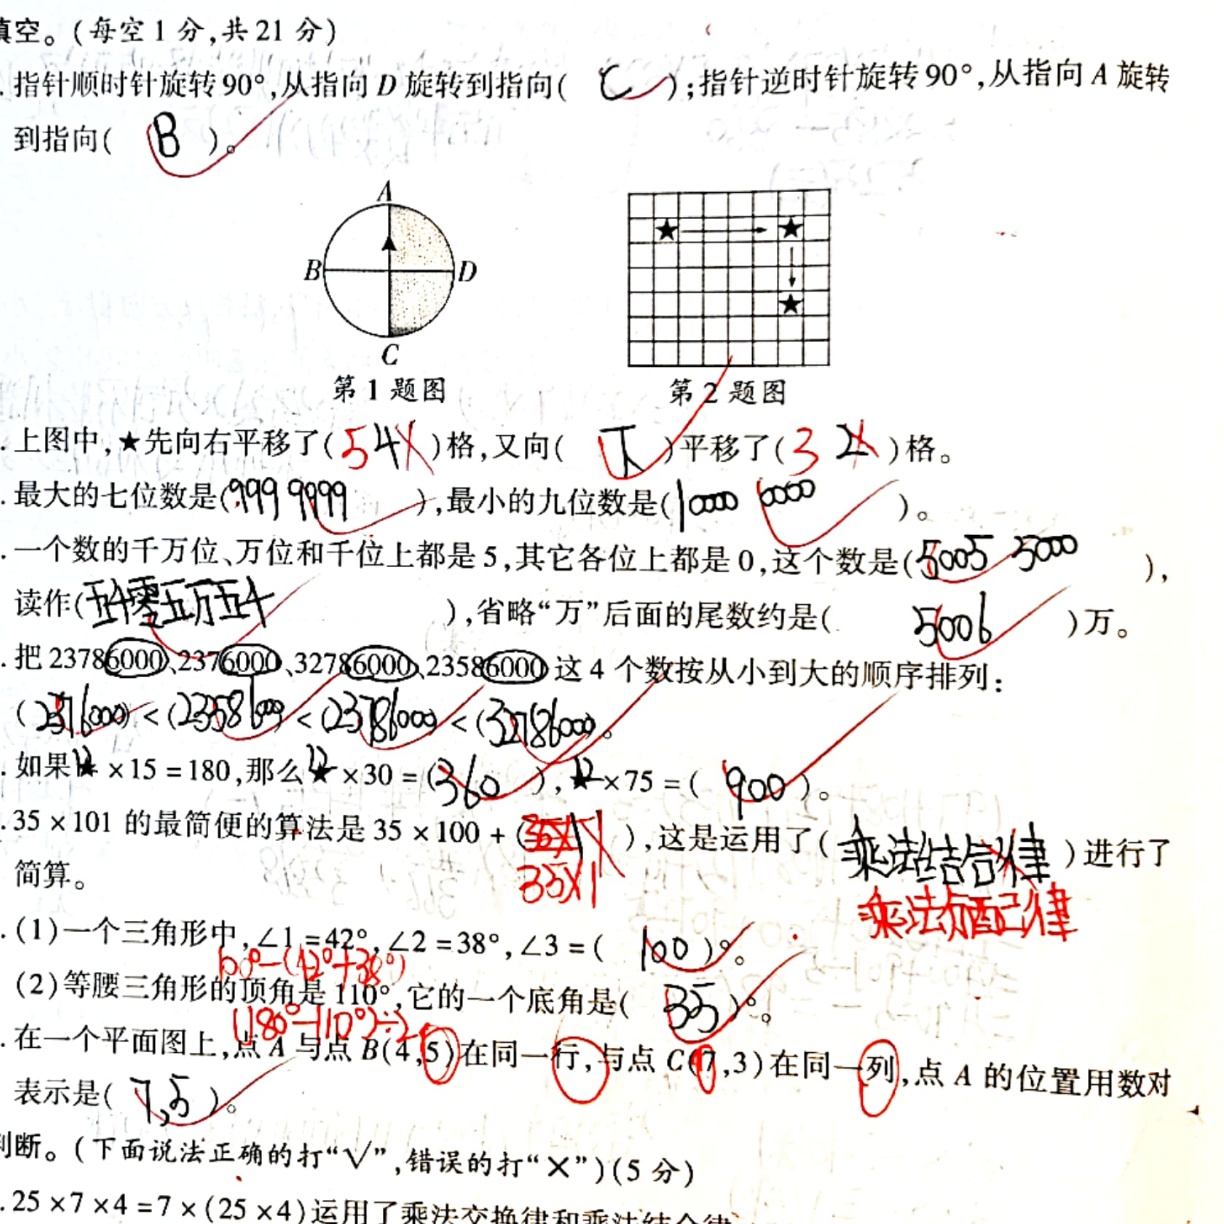 填空。(每空1分,共21分)
.指针顺时针旋转90°,从指向D旋转到指向( C );指针逆时针旋转90°,从指向A旋转
到指向( B )。
A
B
D
C
第1题图
第2题图
上图中,★先向右平移了(5 4 ×)格,又向( 下 )平移了(3 2 ×)格。
.最大的七位数是(999 9999),最小的九位数是(10000 0000)。
.一个数的千万位、万位和千位上都是5,其它各位上都是0,这个数是(5005 5000),
读作(五千零五万五千),省略“万”后面的尾数约是( 5006 )万。
.把23786000、2376000、32786000、23586000这4个数按从小到大的顺序排列:
(2376000)<(23586000)<(23786000)<(32786000)。
.如果★12×15=180,那么★12×30=(360),★12×75=( 900 )。
.35×101的最简便的算法是35×100+(35×1),这是运用了(乘法结合律)进行了
35×1
简算。
乘法分配律
.(1)一个三角形中,∠1=42°,∠2=38°,∠3=( 100 )°。
180°-(42°+38°)
(2)等腰三角形的顶角是110°,它的一个底角是( 35 )°。
(180°-110°)÷2
.在一个平面图上,点A与点B(4,5)在同一行,与点C(7,3)在同一列,点A的位置用数对
表示是( 7,5 )。
判断。(下面说法正确的打“√”,错误的打“×”)(5分)
.25×7×4=7×(25×4)运用了乘法交换律和乘法结合律。